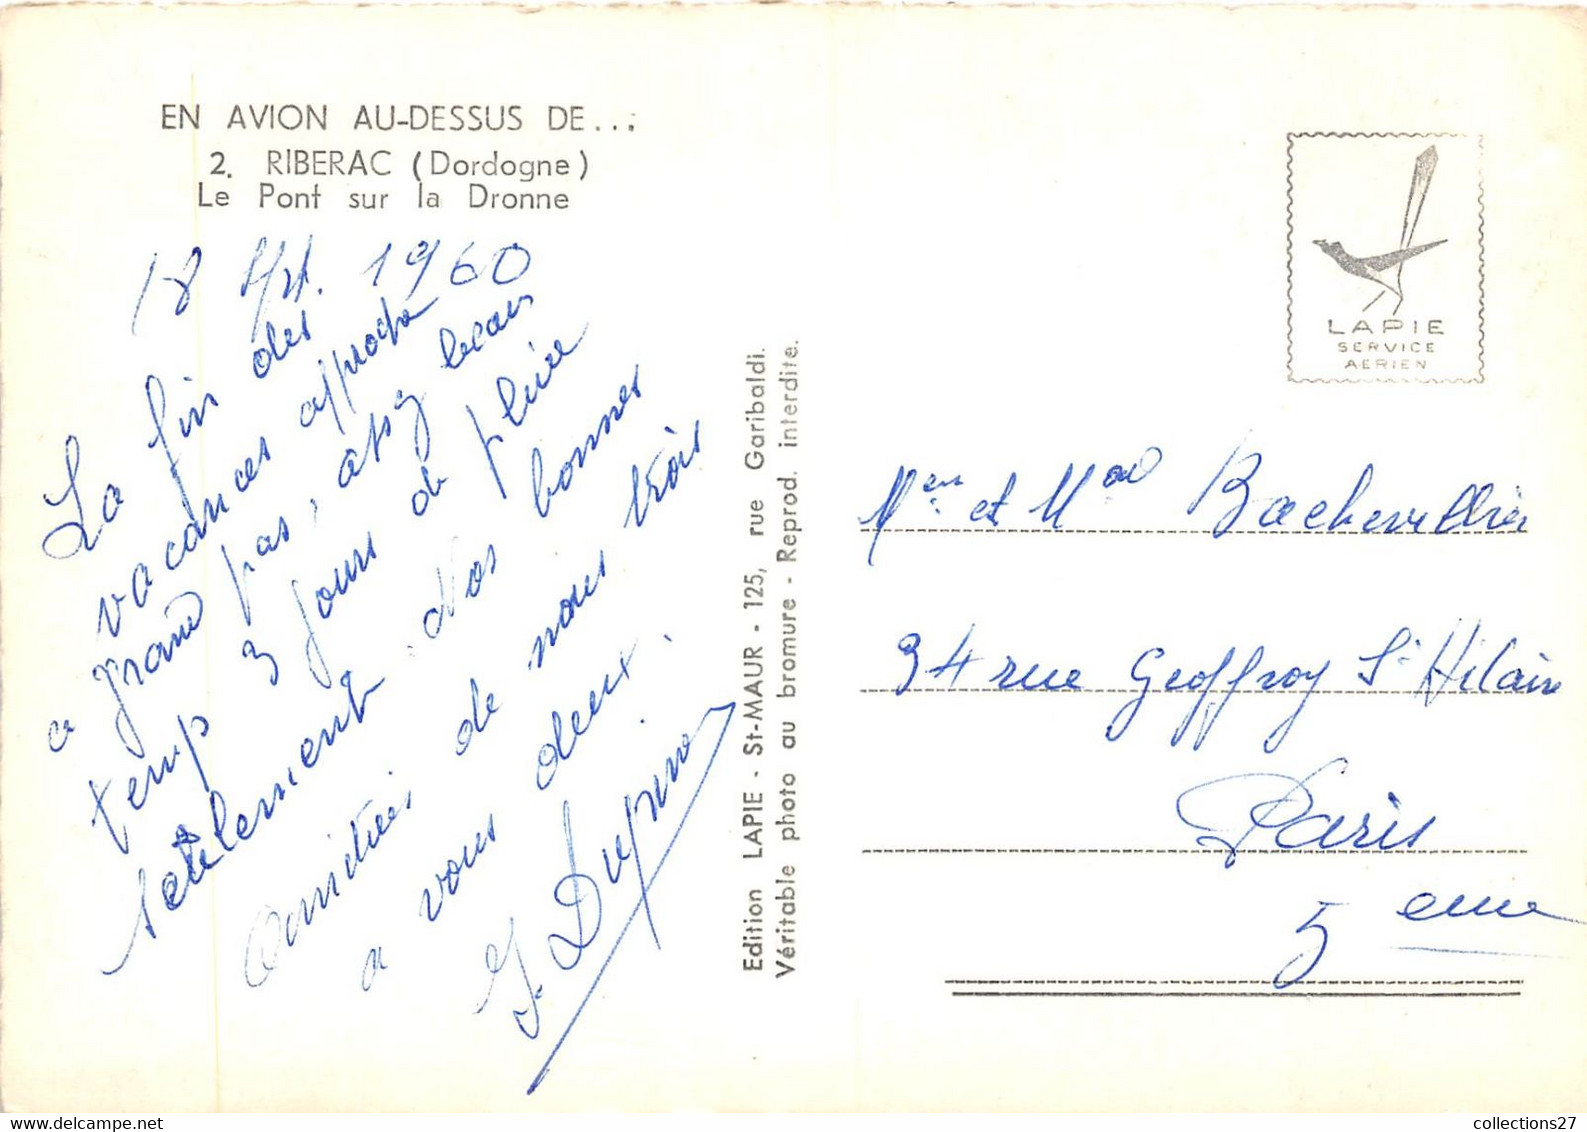 EN AVION AU-DESSUS DE...
2. RIBERAC (Dordogne)
Le Pont sur la Dronne
18 Sept. 1960
La fin des
vacances approche
a grand pas, assez beau
temp 3 jours de pluie
seulement. Nos bonnes
amitiés de nous trois
a vous deux.
Edition LAPIE - St-MAUR - 125, rue Garibaldi.
Véritable photo au bromure - Reprod. interdite.
LAPIE
SERVICE
AERIEN
et
34 rue Geoffroy St Hilaire
Paris
5 eme
collections27